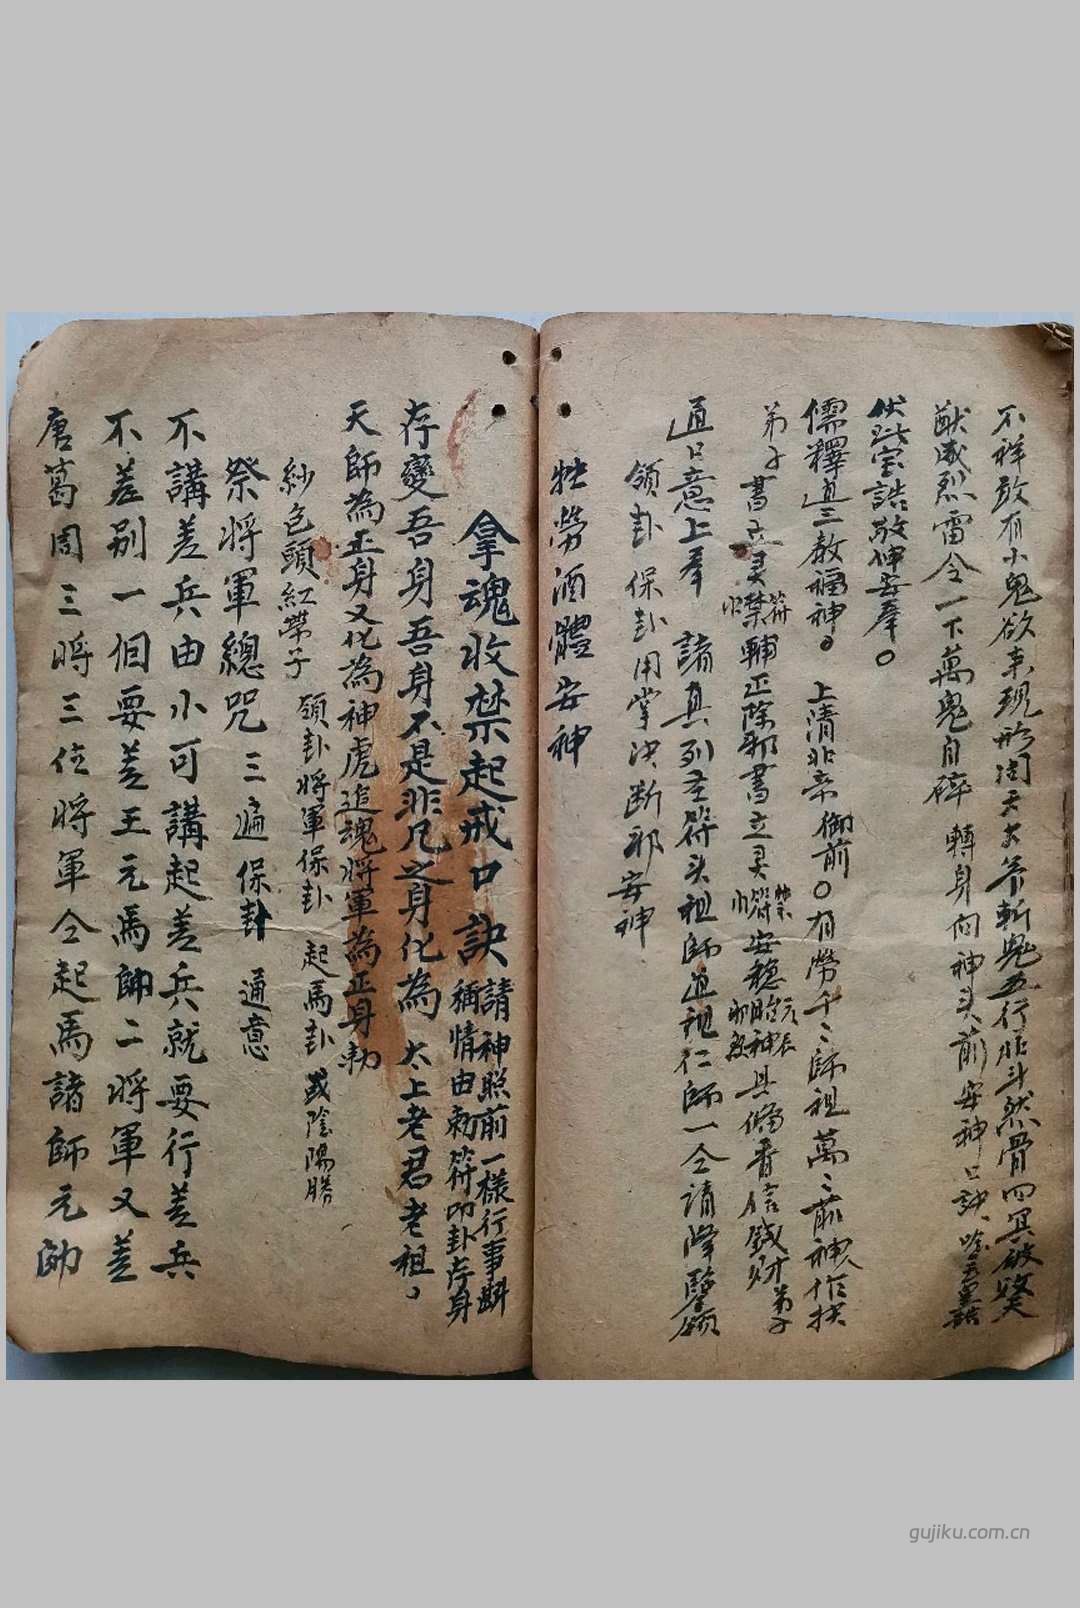 不祥敢有小鬼欲來現形周天大斧斬鬼五行
猷威烈雷令一下萬鬼自碎 轉身向神头前安神口訣
伏以宝誥敬伸安奉〇
儒釋道三教福神〇 上清非帝御前〇有勞千々師祖萬々前神
弟子書立灵禁符輔正除邪書立灵符禁安穩具俻香信錢财弟子
道口意上奉 諸真列圣符头祖師道祖仁師一仝請降
領卦保卦用掌决断邪安神
牲勞酒體安神
拿魂收禁起戒口訣請神照前一樣行事
稱情由勅符叩卦存身
存變吾身吾身不是非凡之身化為 太上老君老祖。
天師為正身又化為神虎追魂將軍為正身勅
紗色頭紅帶子 領卦將軍保卦 起馬卦 或陰陽勝
祭將軍總咒三遍保卦 通意
不講差兵由小可講起差兵就要行差兵
不差別一個要差王元馬帥二將軍又差
唐葛周三將三位將軍仝起馬諸師元帥
gujiku.com.cn